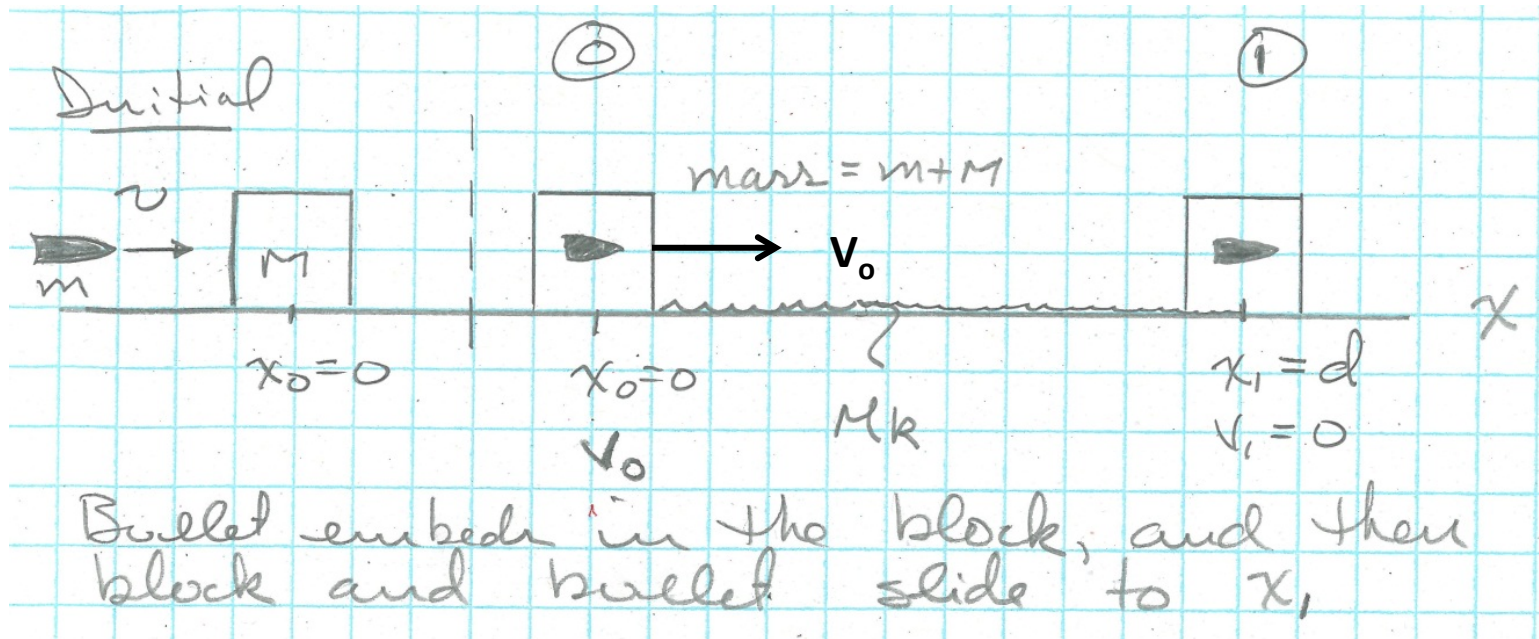 0 1
Initial
mass = m+M
v
M V₀
m x
x₀=0 x₀=0 x₁=d
μk v₁=0
V₀
Bullet embeds in the block, and then
block and bullet slide to x₁